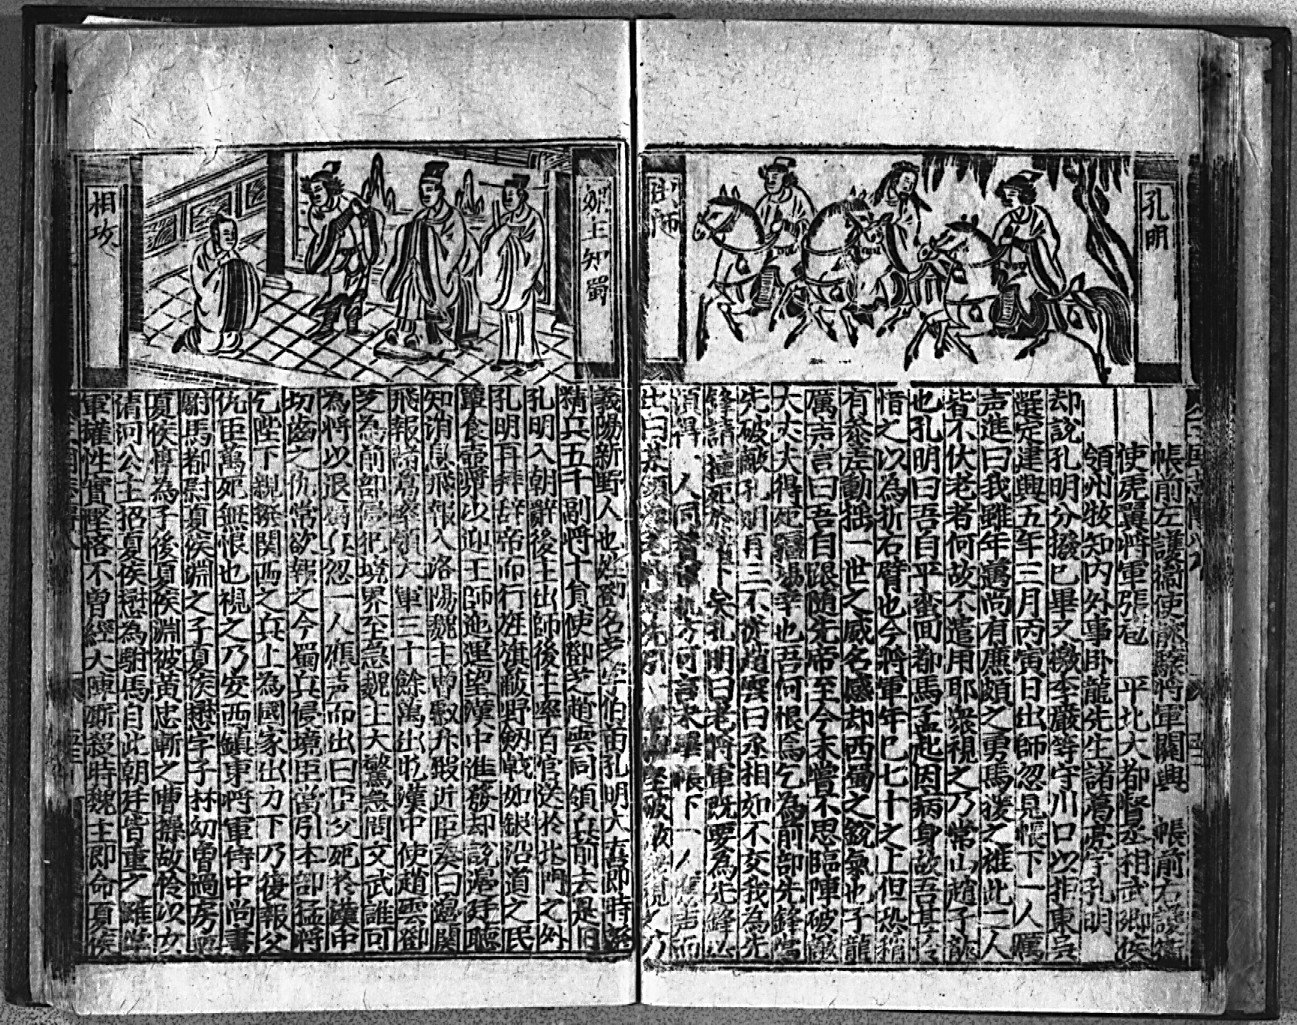 孔明
出師
帳前左護衛使龍驤將軍關興 帳前右護衛
使虎翼將軍張苞 平北大都督丞相武鄉侯
領州牧知內外事臥龍先生諸葛亮字孔明
却說孔明分撥已畢又檄李嚴等守川口以拒東吳
選定建興五年三月丙寅日出師忽見帳下一人厲
声進曰我雖年邁尚有廉頗之勇馬援之雄此二人
皆不伏老者何故不遣用耶衆視之乃常山趙子龍
也孔明曰吾自平蠻回都馬孟起因病身故吾甚
惜之以為折右臂也今將軍年已七十之上但恐稍
有差動搖一世之威名感却西蜀之銳氣也子龍
厲声言曰吾自跟隨先帝至今未嘗不思臨陣破敵
大丈夫得死疆場幸也吾何恨焉乞為前部先鋒
先破敵孔明再三不從趙雲曰丞相如不交我為先
鋒請撞死於下矣孔明曰老將軍既要為先鋒必
須得一人同方可言未畢帳下一人應声而
出曰某願先引
魏主知蜀
相攻
義陽新野人也姓鄧名芝字伯苗孔明大喜即時
精兵五千副將十員使鄧芝趙雲同領兵前去是日
孔明入朝辭後主出師後主率百官送於北門之外
孔明再拜辭帝而行旌旗蔽野劒戟如銀沿道之民
簞食壺漿以迎王師迤運望漢中進發却說邊廷聽
知消息飛報入洛陽魏主曹叡升殿近臣奏曰邊関
飛報諸葛亮領大軍三十餘萬出屯漢中使趙雲鄧
芝為前部侵犯境界至急魏主大驚急問文武誰可
為將以退蜀兵忽一人應声而出曰臣父死於漢中
切齒之仇常欲報之今蜀兵侵境臣當引本部猛將
乞陛下親發関西之兵上為國家出力下乃復報父
仇臣萬死無恨也視之乃安西鎮東將軍侍中尚書
尉馬都尉夏侯淵之子夏侯楙字子林幼曾過房與
夏侯惇為子後夏侯淵被黃忠斬之曹操故怜以女
清河公主招夏侯楙為駙馬自此朝拜皆重之雖掌
軍權性實慳悋不曾經大陣廝殺時魏主即命夏侯